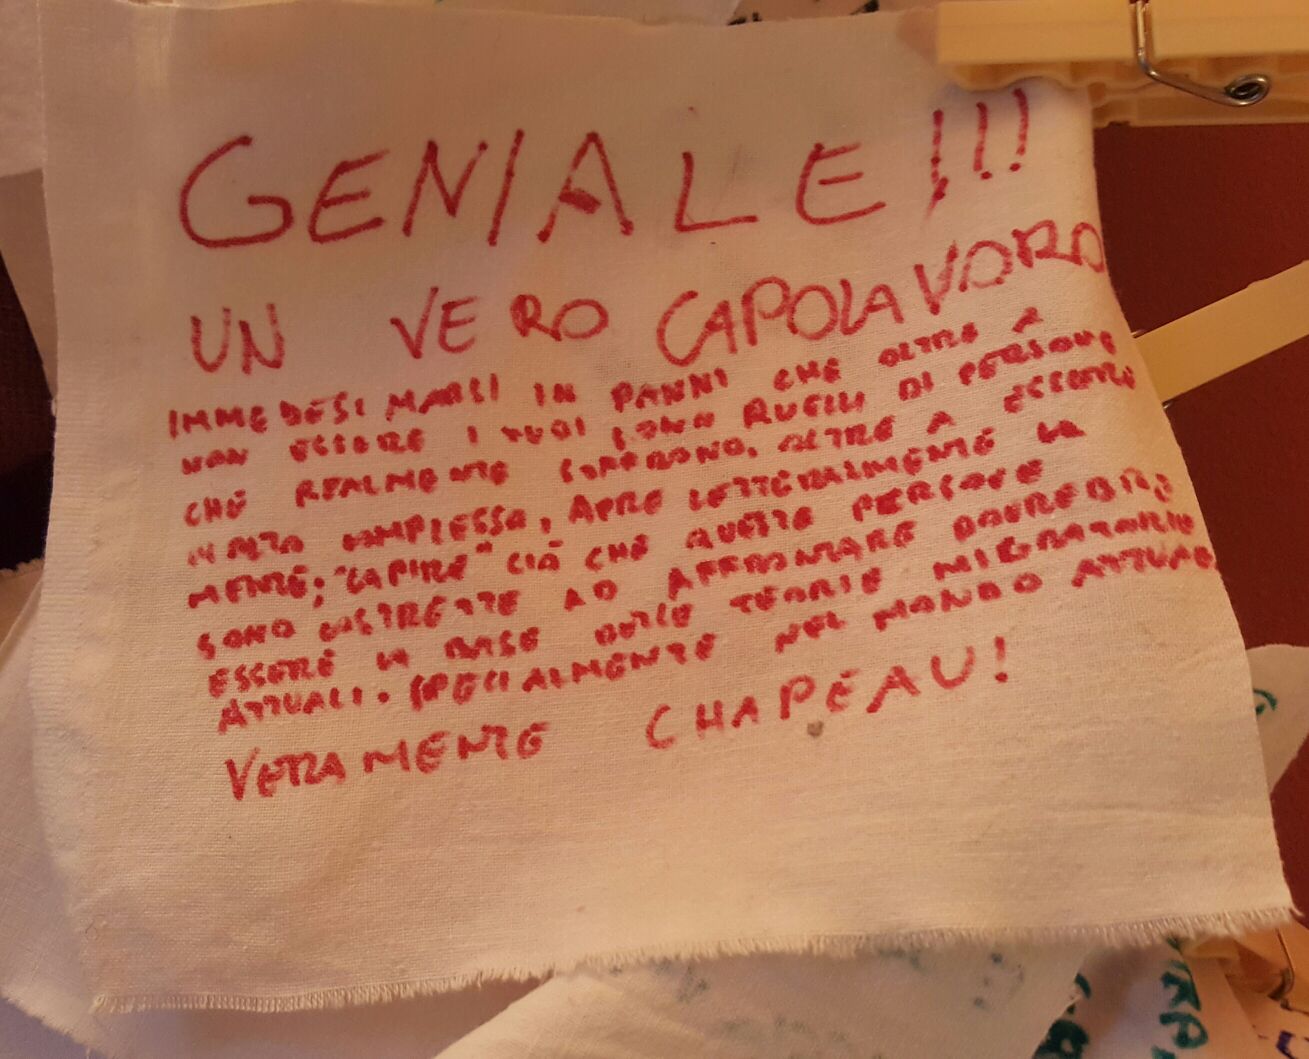 GENIALE!!!
UN VERO CAPOLAVORO
IMMEDESIMARSI IN PANNI CHE OLTRE A
NON ESSERE I TUOI SONO QUELLI DI PERSONE
CHE REALMENTE SOFFRONO. OLTRE A ESSERE
MOLTO COMPLESSA, APRE LETTERALMENTE LA
MENTE; "CAPIRE" CIÒ CHE QUESTE PERSONE
SONO COSTRETTE AD AFFRONTARE DOVREBBE
ESSERE LA BASE DELLE TEORIE MIGRATORIE
ATTUALI. SPECIALMENTE NEL MONDO ATTUALE.
VERAMENTE CHAPEAU!